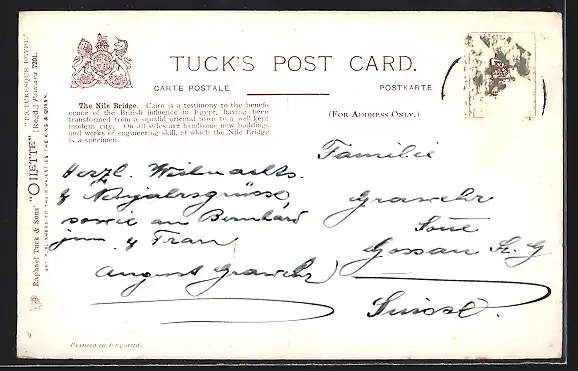 TUCK'S POST CARD.
CARTE POSTALE.
POSTKARTE
The Nile Bridge. Cairo is a testimony to the benefi-
cence of the British influence in Egypt, having been
transformed from a squalid oriental town to a well kept
modern city. On all sides are handsome new buildings
and works of engineering skill, of which the Nile Bridge
is a specimen.
(FOR ADDRESS ONLY.)
Herzl. Weihnachts-
& Neujahrsgrüsse,
sowie an Bernhard
jun. & Frau,
August Grawehr
Familie
Grawehr
Gossau St. G
Suisse.
Raphael Tuck & Sons' "OILETTE" [Regd.] Postcard 7201.
"PICTURESQUE EGYPT."
ART PUBLISHERS TO THEIR MAJESTIES THE KING & QUEEN.
Printed in England.